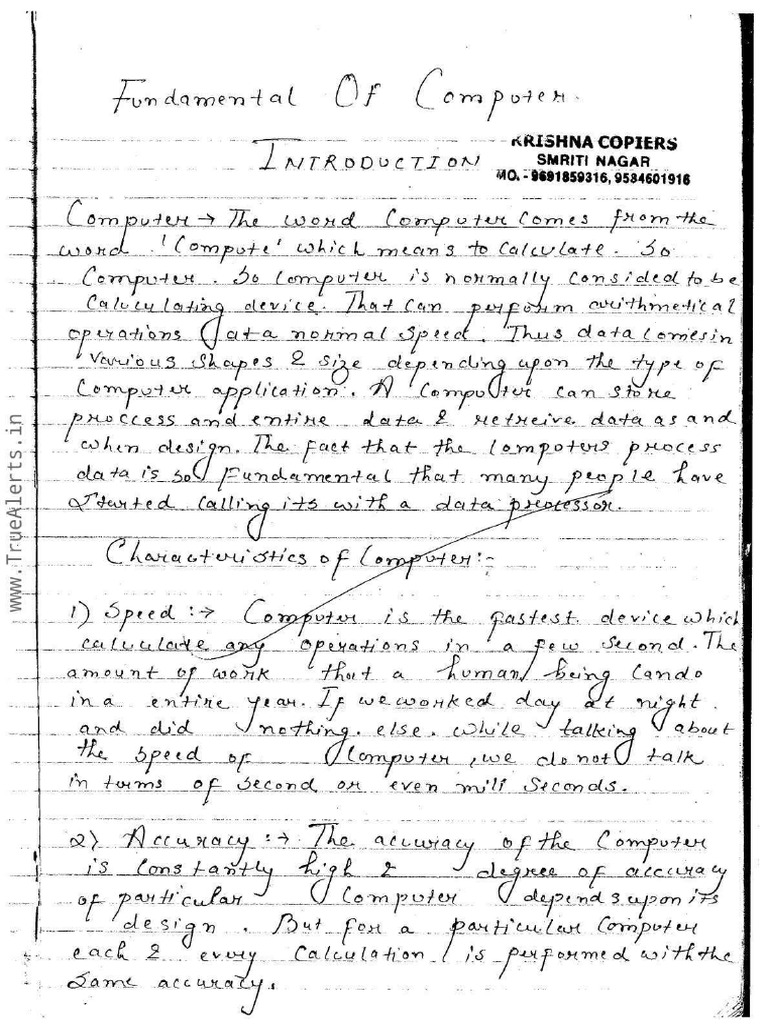 Fundamental Of Computer.
KRISHNA COPIERS
INTRODUCTION
SMRITI NAGAR
MO. - 9691859316, 9584601916
Computer → The word Computer Comes from the
word 'Compute' which means to Calculate. So
Computer. So Computer is normally consided to be
Caluculating device. That Can perform arithmetical
operations at a normal Speed. Thus data Comes in
various Shapes & Size depending upon the type of
Computer application. A Computer can store
proccess and entire data & retreive data as and
when design. The fact that the Computers process
data is so Fundamental that many people have
Started Calling its with a data processor.
Characteristics of Computer:-
1) Speed :→ Computer is the fastest device which
calculate any operations in a few Second. The
amount of work that a human being Can do
in a entire year. If we worked day at night
and did nothing. else. while talking about
the Speed of Computer, we do not talk
in terms of Second or even mili Seconds.
2) Accuracy :→ The accuracy of the Computer
is Constantly high & degree of accuracy
of particular Computer depends upon its
design. But for a particular Computer
each & every Calculation is performed with the
Same accuracy.
www.TrueAlerts.in